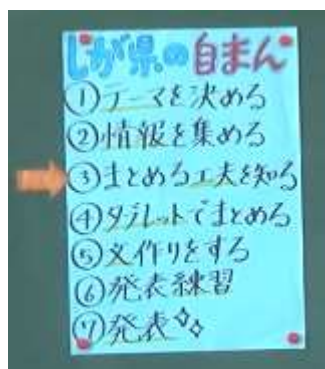 しが県の自まん
①テーマを決める
②情報を集める
③まとめる工夫を知る
④タブレットでまとめる
⑤文作りをする
⑥発表練習
⑦発表